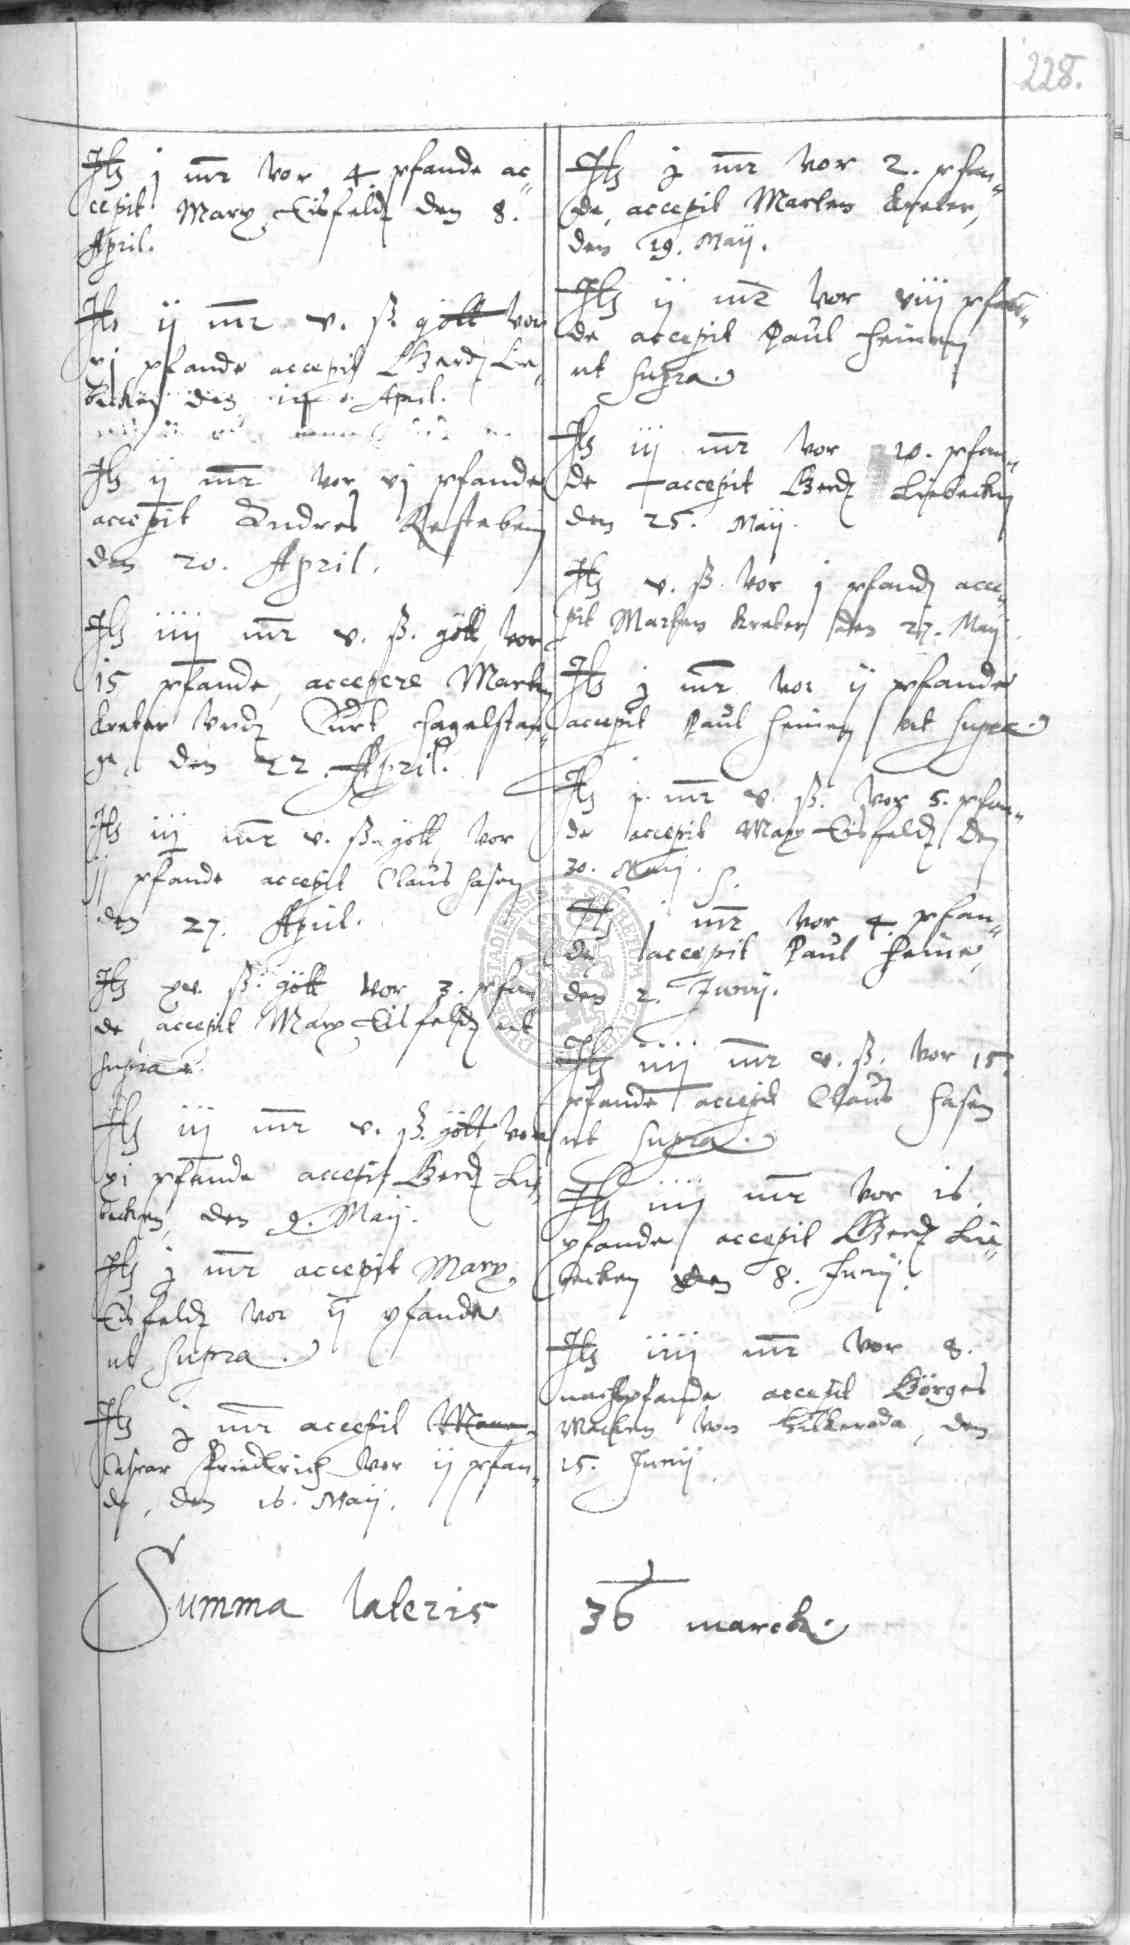 228.
Itz j mr vor 4 pfande ac„
cepit Marx Eisfeldt den 8.
April.
Itz ij mr v. ß. gött vor
vj pfande accepit Gerdt Lie„
becken den April.
Itz ij mr vor vj pfande
accepit Andres
den 20. April.
Itz iiij mr v. ß. gött vor
15 pfande, accepere Marten
Kreter undt Curt Hagelstan„
ge, den 22. April.
Itz iij mr v. ß. gött vor
pfande accepit Claus Hasen
den 27. April.
Itz xv. ß. gött vor 3. pfan
de, accepit Marx Eisfeldt ut
supra.
Itz iij mr v. ß. gött vor
xi pfande accepit Gerdt Lie„
becken, den 9. Maij.
Itz j mr accepit Marx
Eisfeldt vor ij pfande
ut supra.
Itz j mr accepit
Casper Friedrich vor ij pfan„
de, den 16. Maij.
Itz j mr vor 2. pfan„
de, accepit Marten Kreter,
den 19. Maij.
Itz ij mr vor viij pfan„
de accepit Paul Heinen
ut supra.
Itz iij mr vor 10. pfan„
de accepit Gerdt Liebecken
den 25. Maij.
Itz v. ß. vor j pfandt acce„
pit Marten Kreter den 27. Maij
Itz j mr vor ij pfande
accepit Paul Heinen ut supra.
Itz j. mr v. ß. vor 5. pfan„
de accepit Marx Eisfeldt den
30. Maij.
Itz j mr vor 4. pfan„
de accepit Paul Heine,
den 2. Junij.
Itz iiij mr v. ß. vor 15.
pfande accepit Claus Hasen
ut supra.
Itz iiij mr vor 16.
pfande accepit Gerdt Lie„
becken den 8. Junij.
Itz iiij mr vor 8.
nachtpfande accepit Görges
Macken von Hilkeroda, den
15. Junij
Summa lateris 36 marck.